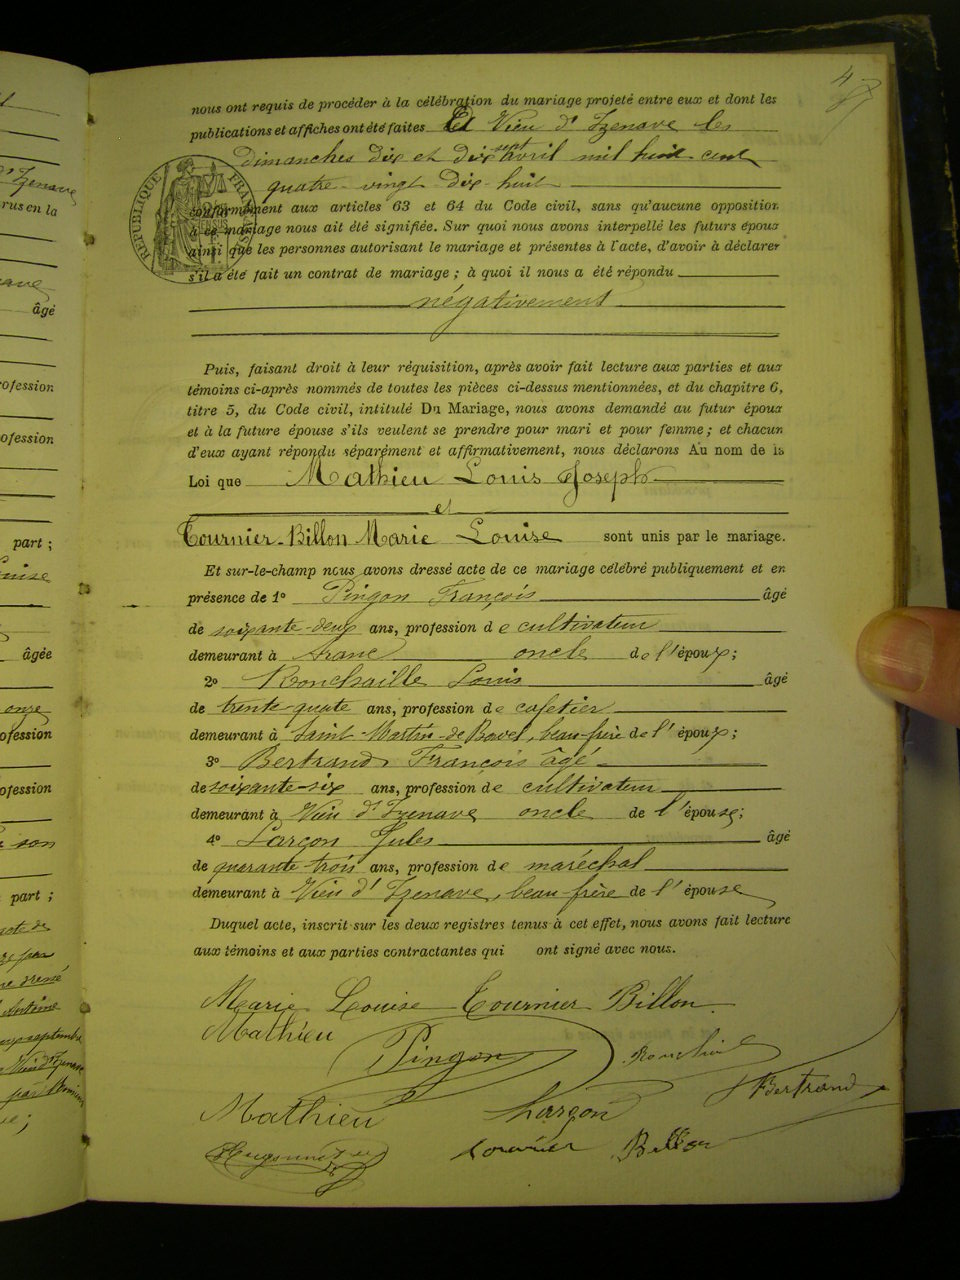 4
nous ont requis de procéder à la célébration du mariage projeté entre eux et dont les
publications et affiches ont été faites à Vieu d'Izenave les
dimanches dix et dix sept avril mil huit cent
quatre-vingt dix-huit
conformément aux articles 63 et 64 du Code civil, sans qu'aucune opposition
à ce mariage nous ait été signifiée. Sur quoi nous avons interpellé les futurs époux
ainsi que les personnes autorisant le mariage et présentes à l'acte, d'avoir à déclarer
s'il a été fait un contrat de mariage ; à quoi il nous a été répondu
négativement
RÉPUBLIQUE FRANÇAISE
Puis, faisant droit à leur réquisition, après avoir fait lecture aux parties et aux
témoins ci-après nommés de toutes les pièces ci-dessus mentionnées, et du chapitre 6,
titre 5, du Code civil, intitulé Du Mariage, nous avons demandé au futur époux
et à la future épouse s'ils veulent se prendre pour mari et pour femme ; et chacun
d'eux ayant répondu séparément et affirmativement, nous déclarons Au nom de la
Loi que Mathieu Louis Joseph
et
Tournier-Billon Marie Louise sont unis par le mariage.
Et sur-le-champ nous avons dressé acte de ce mariage célébré publiquement et en
présence de 1º Pingon François âgé
de soixante-deux ans, profession de cultivateur
demeurant à Aranc oncle de l'époux;
2º Ronchaille Louis âgé
de trente-quatre ans, profession de cafetier
demeurant à Saint-Martin-de-Bavel, beau-frère de l'époux;
3º Bertrand François âgé
de soixante-six ans, profession de cultivateur
demeurant à Vieu d'Izenave oncle de l'épouse;
4º Larçon Jules âgé
de quarante-trois ans, profession de maréchal
demeurant à Vieu d'Izenave, beau-frère de l'épouse
Duquel acte, inscrit sur les deux registres tenus à cet effet, nous avons fait lecture
aux témoins et aux parties contractantes qui ont signé avec nous.
Marie Louise Tournier-Billon
Mathieu Pingon
Bertrand
Mathieu Larçon
Tournier Billon
d'Izenave
rus en la
âgé
profession
profession
part ;
âgée
onze
profession
profession
son
part ;